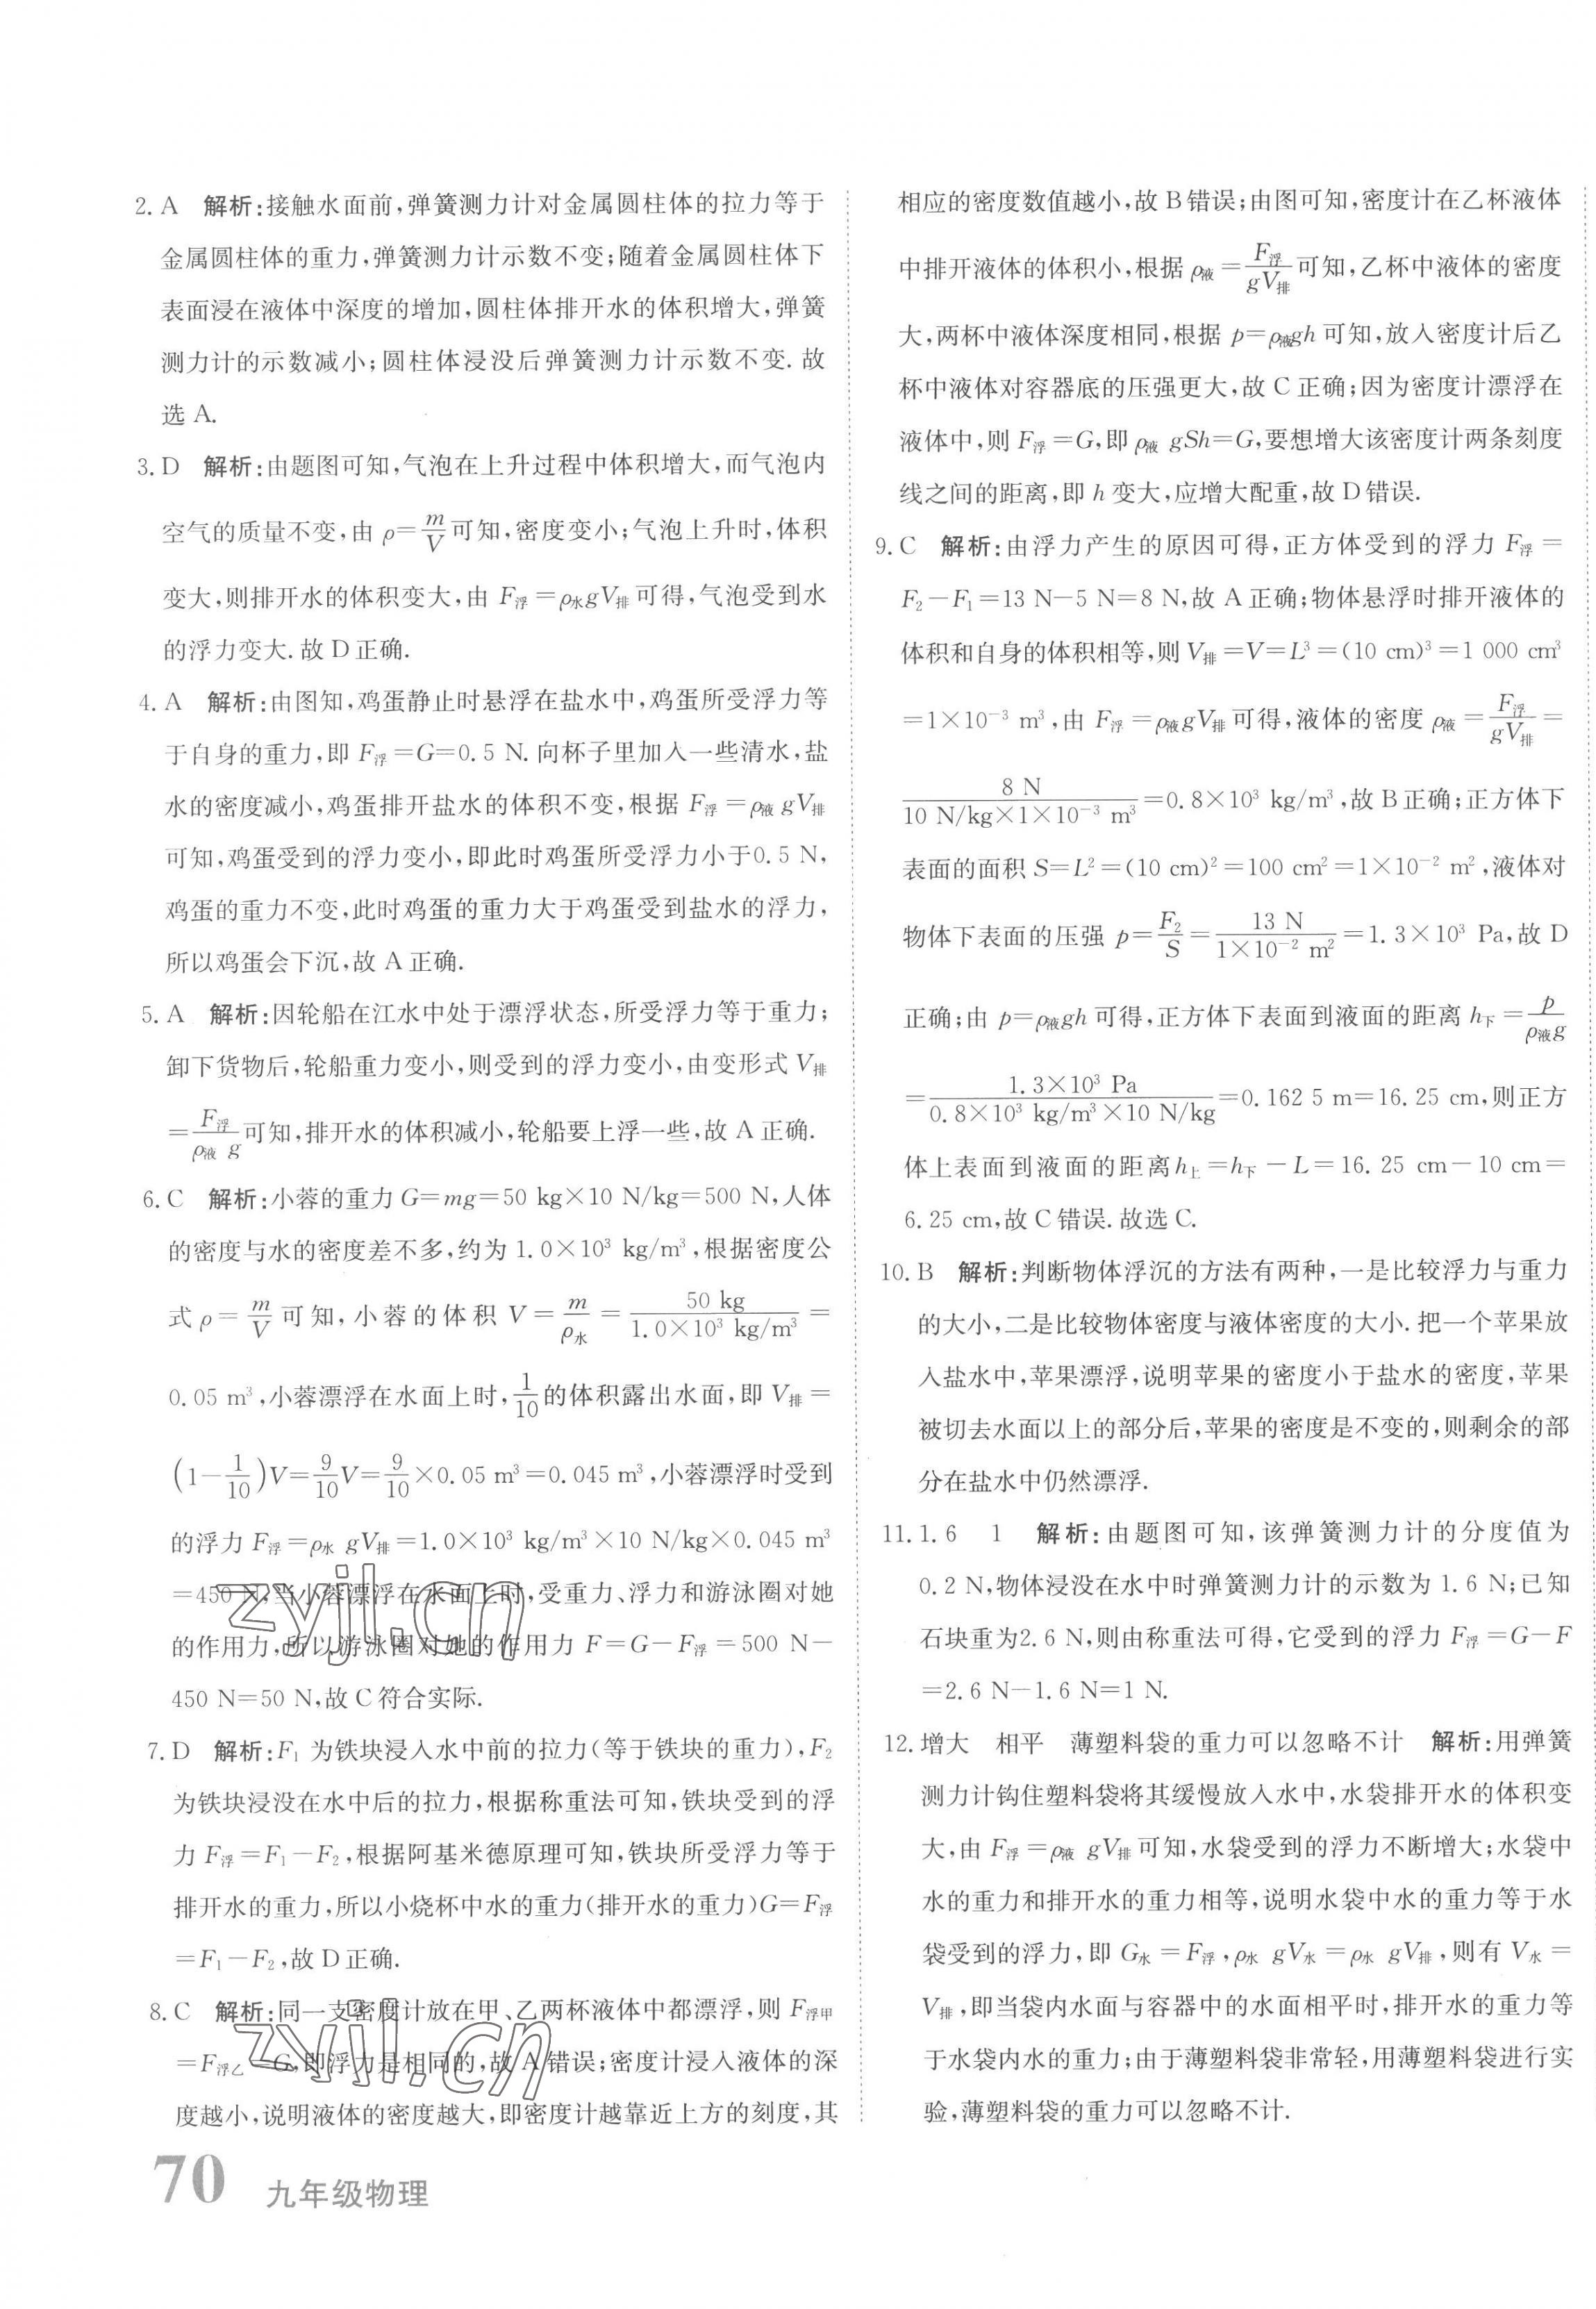 2. A　解析:接触水面前,弹簧测力计对金属圆柱体的拉力等于
金属圆柱体的重力,弹簧测力计示数不变;随着金属圆柱体下
表面浸在液体中深度的增加,圆柱体排开水的体积增大,弹簧
测力计的示数减小;圆柱体浸没后弹簧测力计示数不变. 故
选 A.
3. D　解析:由题图可知,气泡在上升过程中体积增大,而气泡内
空气的质量不变,由 ρ=m/V可知,密度变小;气泡上升时,体积
变大,则排开水的体积变大,由 F浮=ρ水gV排可得,气泡受到水
的浮力变大. 故 D 正确.
4. A　解析:由图知,鸡蛋静止时悬浮在盐水中,鸡蛋所受浮力等
于自身的重力,即 F浮=G=0.5 N. 向杯子里加入一些清水,盐
水的密度减小,鸡蛋排开盐水的体积不变,根据 F浮=ρ液 gV排
可知,鸡蛋受到的浮力变小,即此时鸡蛋所受浮力小于0.5 N,
鸡蛋的重力不变,此时鸡蛋的重力大于鸡蛋受到盐水的浮力,
所以鸡蛋会下沉,故 A 正确.
5. A　解析:因轮船在江水中处于漂浮状态,所受浮力等于重力;
卸下货物后,轮船重力变小,则受到的浮力变小,由变形式 V排
=F浮/(ρ液 g)可知,排开水的体积减小,轮船要上浮一些,故 A 正确.
6. C　解析:小蓉的重力 G=mg=50 kg×10 N/kg=500 N,人体
的密度与水的密度差不多,约为 1.0×10³ kg/m³,根据密度公
式 ρ=m/V可知,小蓉的体积 V=m/ρ水=50 kg/(1.0×10³ kg/m³)=
0.05 m³,小蓉漂浮在水面上时,1/10的体积露出水面,即 V排=
(1-1/10)V=9/10V=9/10×0.05 m³=0.045 m³,小蓉漂浮时受到
的浮力 F浮=ρ水 gV排=1.0×10³ kg/m³×10 N/kg×0.045 m³
=450 N,当小蓉漂浮在水面上时,受重力、浮力和游泳圈对她
的作用力,所以游泳圈对她的作用力 F=G-F浮=500 N-
450 N=50 N,故 C 符合实际.
7. D　解析:F₁ 为铁块浸入水中前的拉力(等于铁块的重力),F₂
为铁块浸没在水中后的拉力,根据称重法可知,铁块受到的浮
力 F浮=F₁-F₂,根据阿基米德原理可知,铁块所受浮力等于
排开水的重力,所以小烧杯中水的重力(排开水的重力)G=F浮
=F₁-F₂,故 D 正确.
8. C　解析:同一支密度计放在甲、乙两杯液体中都漂浮,则 F浮甲
=F浮乙=G,即浮力是相同的,故 A 错误;密度计浸入液体的深
度越小,说明液体的密度越大,即密度计越靠近上方的刻度,其
相应的密度数值越小,故 B 错误;由图可知,密度计在乙杯液体
中排开液体的体积小,根据 ρ液=F浮/(gV排)可知,乙杯中液体的密度
大,两杯中液体深度相同,根据 p=ρ液gh 可知,放入密度计后乙
杯中液体对容器底的压强更大,故 C 正确;因为密度计漂浮在
液体中,则 F浮=G,即 ρ液 gSh=G,要想增大该密度计两条刻度
线之间的距离,即 h 变大,应增大配重,故 D 错误.
9. C　解析:由浮力产生的原因可得,正方体受到的浮力 F浮=
F₂-F₁=13 N-5 N=8 N,故 A 正确;物体悬浮时排开液体的
体积和自身的体积相等,则 V排=V=L³=(10 cm)³=1 000 cm³
=1×10⁻³ m³,由 F浮=ρ液gV排可得,液体的密度 ρ液=F浮/(gV排)=
8 N/(10 N/kg×1×10⁻³ m³)=0.8×10³ kg/m³,故 B 正确;正方体下
表面的面积 S=L²=(10 cm)²=100 cm²=1×10⁻² m²,液体对
物体下表面的压强 p=F₂/S=13 N/(1×10⁻² m²)=1.3×10³ Pa,故 D
正确;由 p=ρ液gh 可得,正方体下表面到液面的距离 h下=p/(ρ液g)
=1.3×10³ Pa/(0.8×10³ kg/m³×10 N/kg)=0.162 5 m=16.25 cm,则正方
体上表面到液面的距离h上=h下-L=16.25 cm-10 cm=
6.25 cm,故 C 错误. 故选 C.
10. B　解析:判断物体浮沉的方法有两种,一是比较浮力与重力
的大小,二是比较物体密度与液体密度的大小. 把一个苹果放
入盐水中,苹果漂浮,说明苹果的密度小于盐水的密度,苹果
被切去水面以上的部分后,苹果的密度是不变的,则剩余的部
分在盐水中仍然漂浮.
11. 1.6　1　解析:由题图可知,该弹簧测力计的分度值为
0.2 N,物体浸没在水中时弹簧测力计的示数为 1.6 N;已知
石块重为2.6 N,则由称重法可得,它受到的浮力 F浮=G-F
=2.6 N-1.6 N=1 N.
12. 增大　相平　薄塑料袋的重力可以忽略不计　解析:用弹簧
测力计钩住塑料袋将其缓慢放入水中,水袋排开水的体积变
大,由 F浮=ρ液 gV排可知,水袋受到的浮力不断增大;水袋中
水的重力和排开水的重力相等,说明水袋中水的重力等于水
袋受到的浮力,即 G水=F浮,ρ水 gV水=ρ水 gV排,则有 V水=
V排,即当袋内水面与容器中的水面相平时,排开水的重力等
于水袋内水的重力;由于薄塑料袋非常轻,用薄塑料袋进行实
验,薄塑料袋的重力可以忽略不计.
zyjl.cn
zyjl.cn
70 九年级物理